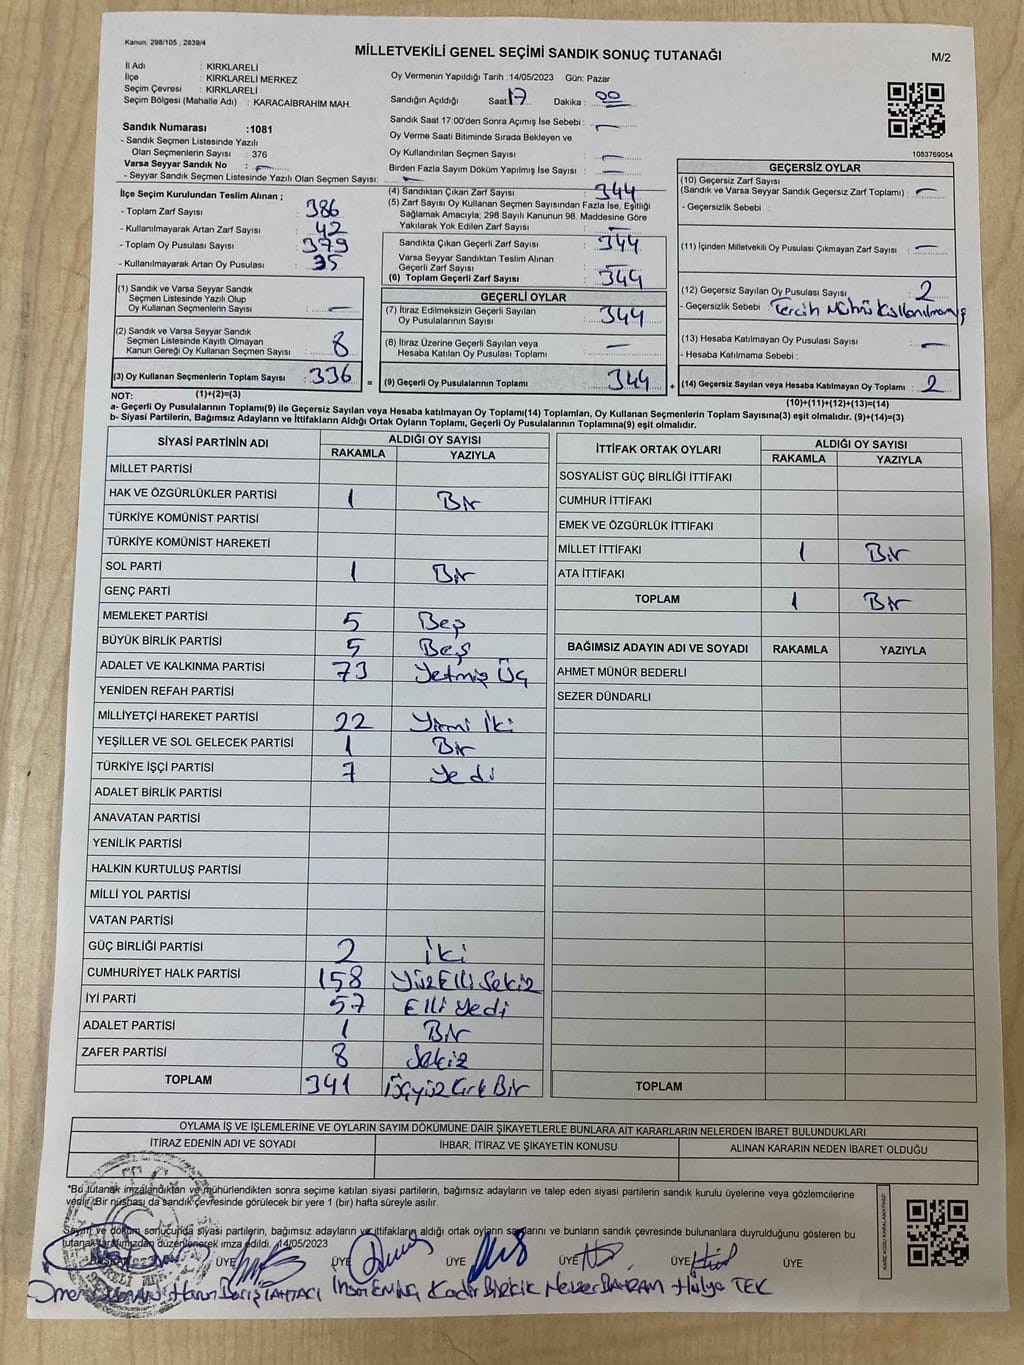 Kanun; 298/105 , 2839/4
MİLLETVEKİLİ GENEL SEÇİMİ SANDIK SONUÇ TUTANAĞI
M/2
İl Adı : KIRKLARELİ
İlçe : KIRKLARELİ MERKEZ
Seçim Çevresi : KIRKLARELİ
Seçim Bölgesi (Mahalle Adı) : KARACAİBRAHİM MAH.
Oy Vermenin Yapıldığı Tarih :14/05/2023 Gün: Pazar
Sandığın Açıldığı Saat: 17 Dakika : 00
Sandık Saat 17:00'den Sonra Açımış İse Sebebi : —
Oy Verme Saati Bitiminde Sırada Bekleyen ve
Oy Kullandırılan Seçmen Sayısı : —
Birden Fazla Sayım Döküm Yapılmış İse Sayısı : —
Sandık Numarası :1081
- Sandık Seçmen Listesinde Yazılı
Olan Seçmenlerin Sayısı : 376
Varsa Seyyar Sandık No : —
- Seyyar Sandık Seçmen Listesinde Yazılı Olan Seçmen Sayısı: —
1083769054
İlçe Seçim Kurulundan Teslim Alınan ;
- Toplam Zarf Sayısı : 386
- Kullanılmayarak Artan Zarf Sayısı : 42
- Toplam Oy Pusulası Sayısı : 379
- Kullanılmayarak Artan Oy Pusulası : 35
(1) Sandık ve Varsa Seyyar Sandık
Seçmen Listesinde Yazılı Olup
Oy Kullanan Seçmenlerin Sayısı : —
(2) Sandık ve Varsa Seyyar Sandık
Seçmen Listesinde Kayıtlı Olmayan
Kanun Gereği Oy Kullanan Seçmen Sayısı : 8
(3) Oy Kullanan Seçmenlerin Toplam Sayısı : 336 =
(4) Sandıktan Çıkan Zarf Sayısı : 344
(5) Zarf Sayısı Oy Kullanan Seçmen Sayısından Fazla İse, Eşitliği
Sağlamak Amacıyla; 298 Sayılı Kanunun 98. Maddesine Göre
Yakılarak Yok Edilen Zarf Sayısı : —
Sandıkta Çıkan Geçerli Zarf Sayısı : 344
Varsa Seyyar Sandıktan Teslim Alınan
Geçerli Zarf Sayısı : —
(6) Toplam Geçerli Zarf Sayısı : 344
GEÇERLİ OYLAR
(7) İtiraz Edilmeksizin Geçerli Sayılan
Oy Pusulalarının Sayısı : 344
(8) İtiraz Üzerine Geçerli Sayılan veya
Hesaba Katılan Oy Pusulası Toplamı : —
(9) Geçerli Oy Pusulalarının Toplamı : 344 +
GEÇERSİZ OYLAR
(10) Geçersiz Zarf Sayısı
(Sandık ve Varsa Seyyar Sandık Geçersiz Zarf Toplamı) : —
- Geçersizlik Sebebi :
(11) İçinden Milletvekili Oy Pusulası Çıkmayan Zarf Sayısı : —
(12) Geçersiz Sayılan Oy Pusulası Sayısı : 2
- Geçersizlik Sebebi : Tercih Mührü Kullanılmamış
(13) Hesaba Katılmayan Oy Pusulası Sayısı : —
- Hesaba Katılmama Sebebi :
(14) Geçersiz Sayılan veya Hesaba Katılmayan Oy Toplamı : 2
NOT: (1)+(2)=(3)
(10)+(11)+(12)+(13)=(14)
a- Geçerli Oy Pusulalarının Toplamı(9) ile Geçersiz Sayılan veya Hesaba katılmayan Oy Toplamı(14) Toplamları, Oy Kullanan Seçmenlerin Toplam Sayısına(3) eşit olmalıdır. (9)+(14)=(3)
b- Siyasi Partilerin, Bağımsız Adayların ve İttifakların Aldığı Ortak Oyların Toplamı, Geçerli Oy Pusulalarının Toplamına(9) eşit olmalıdır.
SİYASİ PARTİNİN ADI ALDIĞI OY SAYISI
RAKAMLA YAZIYLA
MİLLET PARTİSİ
HAK VE ÖZGÜRLÜKLER PARTİSİ 1 Bir
TÜRKİYE KOMÜNİST PARTİSİ
TÜRKİYE KOMÜNİST HAREKETİ
SOL PARTİ 1 Bir
GENÇ PARTİ
MEMLEKET PARTİSİ 5 Beş
BÜYÜK BİRLİK PARTİSİ 5 Beş
ADALET VE KALKINMA PARTİSİ 73 Yetmiş Üç
YENİDEN REFAH PARTİSİ
MİLLİYETÇİ HAREKET PARTİSİ 22 Yirmi İki
YEŞİLLER VE SOL GELECEK PARTİSİ 1 Bir
TÜRKİYE İŞÇİ PARTİSİ 7 Yedi
ADALET BİRLİK PARTİSİ
ANAVATAN PARTİSİ
YENİLİK PARTİSİ
HALKIN KURTULUŞ PARTİSİ
MİLLİ YOL PARTİSİ
VATAN PARTİSİ
GÜÇ BİRLİĞİ PARTİSİ 2 İki
CUMHURİYET HALK PARTİSİ 158 Yüz Elli Sekiz
İYİ PARTİ 57 Elli Yedi
ADALET PARTİSİ 1 Bir
ZAFER PARTİSİ 8 Sekiz
TOPLAM 341 Üçyüz Kırk Bir
İTTİFAK ORTAK OYLARI ALDIĞI OY SAYISI
RAKAMLA YAZIYLA
SOSYALİST GÜÇ BİRLİĞİ İTTİFAKI
CUMHUR İTTİFAKI
EMEK VE ÖZGÜRLÜK İTTİFAKI
MİLLET İTTİFAKI 1 Bir
ATA İTTİFAKI
TOPLAM 1 Bir
BAĞIMSIZ ADAYIN ADI VE SOYADI RAKAMLA YAZIYLA
AHMET MÜNÜR BEDERLİ
SEZER DÜNDARLI
TOPLAM
OYLAMA İŞ VE İŞLEMLERİNE VE OYLARIN SAYIM DÖKÜMÜNE DAİR ŞİKAYETLERLE BUNLARA AİT KARARLARIN NELERDEN İBARET BULUNDUKLARI
İTİRAZ EDENİN ADI VE SOYADI İHBAR, İTİRAZ VE ŞİKAYETİN KONUSU ALINAN KARARIN NEDEN İBARET OLDUĞU
*Bu tutanak imzalandıktan ve mühürlendikten sonra seçime katılan siyasi partilerin, bağımsız adayların ve talep eden siyasi partilerin sandık kurulu üyelerine veya gözlemcilerine
verilir. Bir nüshası da sandık çevresinde görülecek bir yere 1 (bir) hafta süreyle asılır.
Sayım ve döküm sonucunda siyasi partilerin, bağımsız adayların ve ittifakların aldığı ortak oyların sayılarını ve bunların sandık çevresinde bulunanlara duyrulduğunu gösteren bu
tutanak tarafımızdan düzenlenerek imza edildi. 14/05/2023
BAŞKAN ÜYE ÜYE ÜYE ÜYE ÜYE ÜYE
Ömer Harun Barış TAHTACI Kadir Birkik Nevzer BAYRAM Hülya TEK